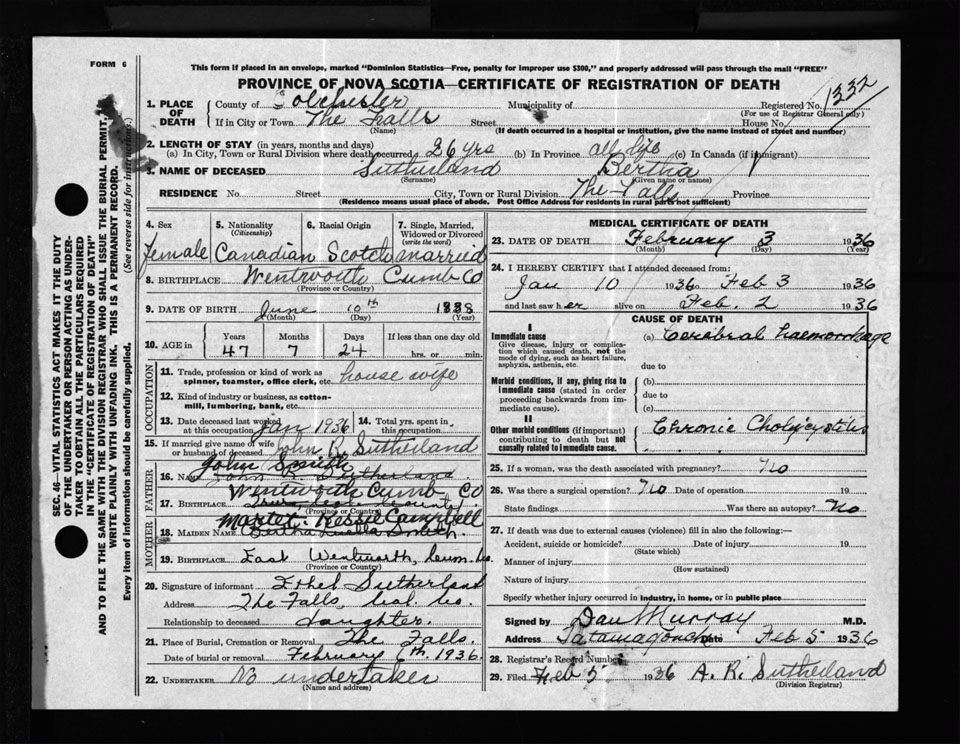 FORM 6
This form if placed in an envelope, marked "Dominion Statistics—Free, penalty for improper use $300," and properly addressed will pass through the mail "FREE"
PROVINCE OF NOVA SCOTIA—CERTIFICATE OF REGISTRATION OF DEATH
1332
1. PLACE OF DEATH
County of Colchester Municipality of Registered No.
(For use of Registrar General only)
If in City or Town The Falls Street House No.
(Name) (If death occurred in a hospital or institution, give the name instead of street and number)
2. LENGTH OF STAY (in years, months and days)
(a) In City, Town or Rural Division where death occurred 26 yrs (b) In Province all life (c) In Canada (if immigrant)
3. NAME OF DECEASED Sutherland Bertha
(Surname) (Given name or names)
RESIDENCE No. Street City, Town or Rural Division The Falls Province
(Residence means usual place of abode. Post Office Address for residents in rural parts not sufficient)
4. Sex 5. Nationality (Citizenship) 6. Racial Origin 7. Single, Married, Widowed or Divorced (write the word)
female Canadian Scotch married
8. BIRTHPLACE Wentworth Cumb Co
(Province or Country)
9. DATE OF BIRTH June 10th 1888
(Month) (Day) (Year)
10. AGE in Years Months Days If less than one day old
47 7 24 hrs. or min.
OCCUPATION
11. Trade, profession or kind of work as spinner, teamster, office clerk, etc. house wife
12. Kind of industry or business, as cotton-mill, lumbering, bank, etc.
13. Date deceased last worked at this occupation Jan 1936 14. Total yrs. spent in this occupation
15. If married give name of wife or husband of deceased John R. Sutherland
FATHER
John Smith
16. Name John R. Sutherland
Wentworth Cumb Co
17. Birthplace
(Province or Country)
MOTHER
Campbell
18. Maiden Name Bertha Luella Smith
19. Birthplace East Wentworth, Cum. Co.
(Province or Country)
20. Signature of informant Ethel Sutherland
Address The Falls, Col. Co.
Relationship to deceased daughter.
21. Place of Burial, Cremation or Removal The Falls.
Date of burial or removal February 6th. 1936.
22. UNDERTAKER No undertaker
(Name and address)
MEDICAL CERTIFICATE OF DEATH
23. DATE OF DEATH February 3 1936
(Month) (Day) (Year)
24. I HEREBY CERTIFY that I attended deceased from:
Jan 10 1936 to Feb 3 1936
and last saw her alive on Feb. 2 1936
CAUSE OF DEATH
I
Immediate cause (a) Cerebral haemorrhage
Give disease, injury or complication which caused death, not the mode of dying, such as heart failure, asphyxia, asthenia, etc.
due to
Morbid conditions, if any, giving rise to immediate cause (stated in order proceeding backwards from immediate cause).
(b)
due to
(c)
II
Other morbid conditions (if important) contributing to death but not causally related to immediate cause.
Chronic Cholecystitis
25. If a woman, was the death associated with pregnancy? no
26. Was there a surgical operation? no Date of operation 19
State findings Was there an autopsy? no
27. If death was due to external causes (violence) fill in also the following:—
Accident, suicide or homicide? Date of injury 19
(State which)
Manner of injury
(How sustained)
Nature of injury
Specify whether injury occurred in industry, in home, or in public place
Signed by Dan Murray M.D.
Address Tatamagouche Date Feb 5 1936
28. Registrar's Record Number
29. Filed Feb 5 1936 A. R. Sutherland
(Division Registrar)
SEC. 46—VITAL STATISTICS ACT MAKES IT THE DUTY
OF THE UNDERTAKER OR PERSON ACTING AS UNDER-
TAKER TO OBTAIN ALL THE PARTICULARS REQUIRED
IN THE "CERTIFICATE OF REGISTRATION OF DEATH"
AND TO FILE THE SAME WITH THE DIVISION REGISTRAR WHO SHALL ISSUE THE BURIAL PERMIT.
WRITE PLAINLY WITH UNFADING INK. THIS IS A PERMANENT RECORD.
Every item of information should be carefully supplied. (See reverse side for instructions).